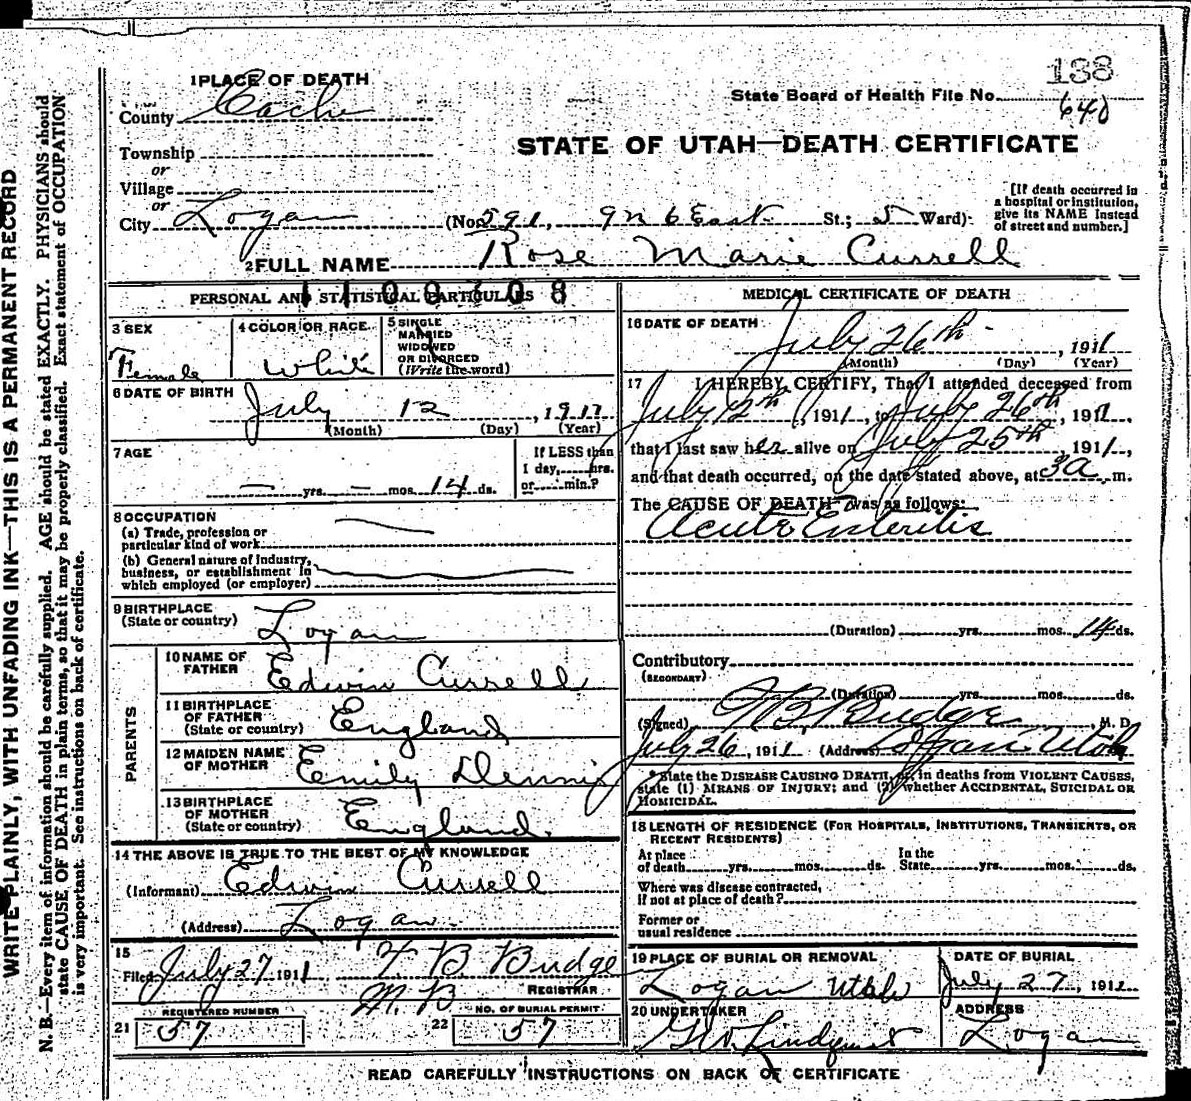 WRITE PLAINLY, WITH UNFADING INK—THIS IS A PERMANENT RECORD
N. B.—Every item of information should be carefully supplied. AGE should be stated EXACTLY. PHYSICIANS should
state CAUSE OF DEATH in plain terms, so that it may be properly classified. Exact statement of OCCUPATION
is very important. See instructions on back of certificate.
138
State Board of Health File No. 640
STATE OF UTAH—DEATH CERTIFICATE
1 PLACE OF DEATH
County Cache
Township
or
Village
or
City Logan (No. 591, 9 N 6 East St.; 5 Ward)
[If death occurred in
a hospital or institution,
give its NAME instead
of street and number.]
2 FULL NAME Rose Marie Currell
PERSONAL AND STATISTICAL PARTICULARS
3 SEX
Female
4 COLOR OR RACE
White
5 SINGLE
MARRIED
WIDOWED
OR DIVORCED
(Write the word)
6 DATE OF BIRTH
July 12, 1911
(Month) (Day) (Year)
7 AGE
— yrs. — mos. 14 ds.
If LESS than
1 day, hrs.
or min.?
8 OCCUPATION
(a) Trade, profession or
particular kind of work
(b) General nature of industry,
business, or establishment in
which employed (or employer)
9 BIRTHPLACE
(State or country)
Logan
PARENTS
10 NAME OF
FATHER
Edwin Currell
11 BIRTHPLACE
OF FATHER
(State or country)
England
12 MAIDEN NAME
OF MOTHER
Emily Dennis
13 BIRTHPLACE
OF MOTHER
(State or country)
England
14 THE ABOVE IS TRUE TO THE BEST OF MY KNOWLEDGE
(Informant) Edwin Currell
(Address) Logan
15
Filed July 27 1911 B Budge
M. D
REGISTRAR
REGISTERED NUMBER
21 57
NO. OF BURIAL PERMIT
22 57
MEDICAL CERTIFICATE OF DEATH
16 DATE OF DEATH
July 26th, 1911
(Month) (Day) (Year)
17 I HEREBY CERTIFY, That I attended deceased from
July 12th, 1911, to July 26th, 1911,
that I last saw her alive on July 25th, 1911,
and that death occurred, on the date stated above, at 3a m.
The CAUSE OF DEATH* was as follows:
Acute Enteritis
(Duration) yrs. mos. 14 ds.
Contributory
(SECONDARY)
(Duration) yrs. mos. ds.
(Signed) B. Budge, M. D.
July 26, 1911 (Address) Logan Utah
* State the DISEASE CAUSING DEATH, or, in deaths from VIOLENT CAUSES,
state (1) MEANS OF INJURY; and (2) whether ACCIDENTAL, SUICIDAL OR
HOMICIDAL.
18 LENGTH OF RESIDENCE (FOR HOSPITALS, INSTITUTIONS, TRANSIENTS, OR
RECENT RESIDENTS)
At place
of death yrs. mos. ds.
In the
State yrs. mos. ds.
Where was disease contracted,
if not at place of death?
Former or
usual residence
19 PLACE OF BURIAL OR REMOVAL
Logan Utah
DATE OF BURIAL
July 27, 1911
20 UNDERTAKER
G. W. Lindquist
ADDRESS
Logan
READ CAREFULLY INSTRUCTIONS ON BACK OF CERTIFICATE